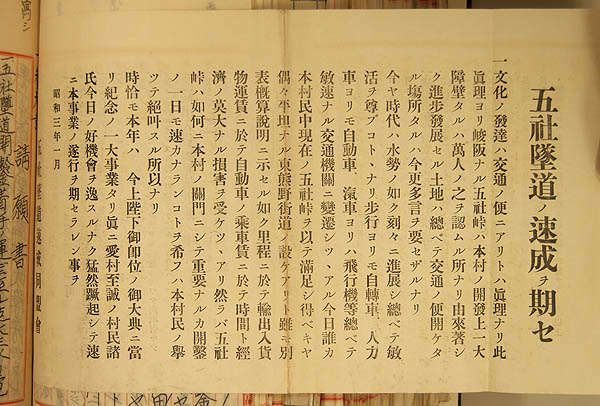 五社墜道ノ速成ヲ期セ
一文化ノ發達ハ交通ノ便ニアリトハ眞理ナリ此
眞理ヨリ峻阪ナル五社峠ハ本村ノ開發上一大
障壁タルハ萬人ノ之ヲ認ムル所ナリ由來著シ
ク進歩發展セル土地ハ總ベテ交通ノ便開ケタ
ル塲所タルハ今更多言ヲ要セザルナリ
今ヤ時代ハ水勢ノ如ク刻々ニ進展シ總ベテ敏
活ヲ尊ブコト、ナリ歩行ヨリモ自轉車、人力
車ヨリモ自動車、滊車ヨリハ飛行機等總ベテ
敏速ナル交通機關ニ變遷シツ、アル今日誰カ
本村民中現在ノ五社峠ヲ以テ滿足シ得ベキヤ
偶々平坦ナル東熊野街道ノ設ケアリト雖モ別
表概算說明ニ示セル如ク里程ニ於テ輸出入貨
物運賃ニ於テ自動車ノ乘車賃ニ於テ時間ト經
濟ノ莫大ナル損害ヲ受ケツ、アリ然ラバ五社
峠ハ如何ニ本村ノ關門ニシテ重要ナルカ開鑿
ノ一日モ速カナランコトヲ希フハ本村民ノ擧
ツテ絕叫スル所ナリ
時恰モ本年ハ　今上陛下御卽位ノ御大典ニ當
リ紀念ノ一大事業タリ眞ニ愛村至誠ノ村民諸
氏今日ノ好機會ヲ逸スルナク猛然蹶起シテ速
ニ本事業ノ遂行ヲ期セラレン事ヲ
昭和三年一月
五社墜道速成同盟會
請願書